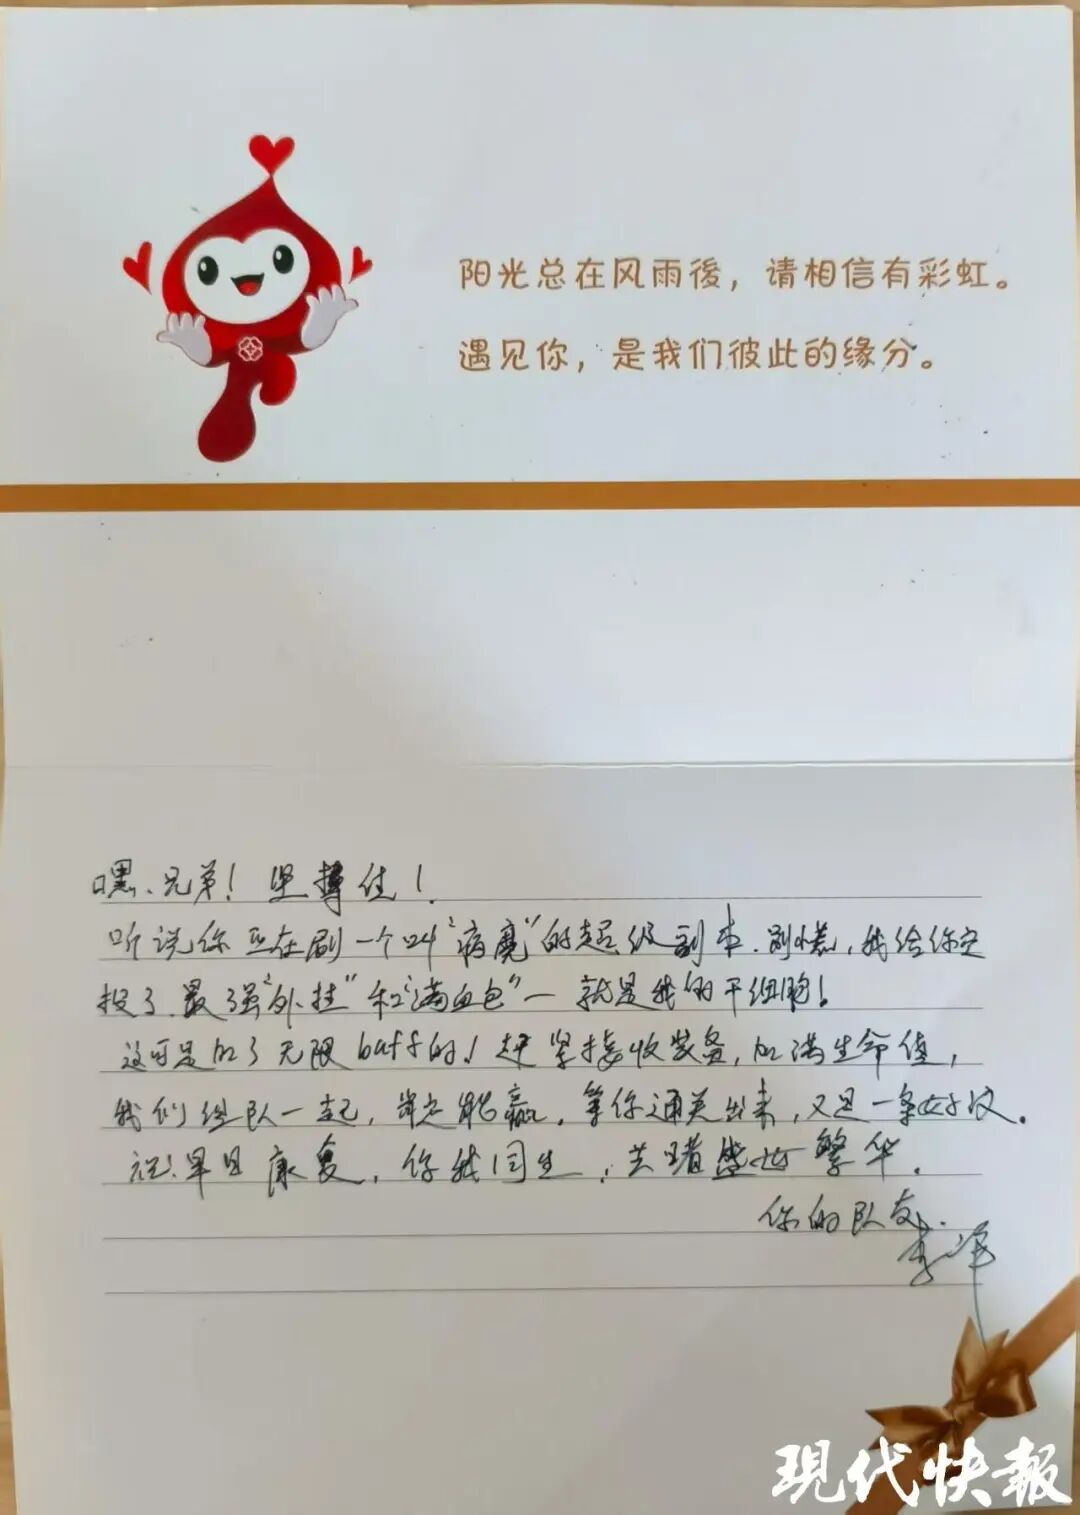 阳光总在风雨後，请相信有彩虹。
遇见你，是我们彼此的缘分。
嘿、兄弟！坚持住！
听说你正在刷一个叫“病魔”的超级副本.别慌，我给你空
投了最强“外挂”和“满血包”—就是我的干细胞！
这可是加了无限buff的！赶紧接收装备,加满生命值，
我们组队一起，肯定能赢。等你通关出来，又是一条好汉。
祝：早日康复，你我同生，共睹盛世繁华。
你的队友.
现代快報